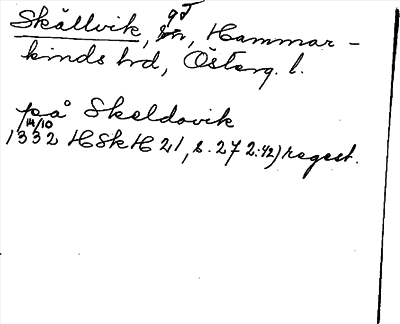 gT
Skällvik, sn, Hammar-
kinds hd, Österg. l.
på Skeldovik
14/10
1332 HSkH 21, s. 27 2:42) regest.